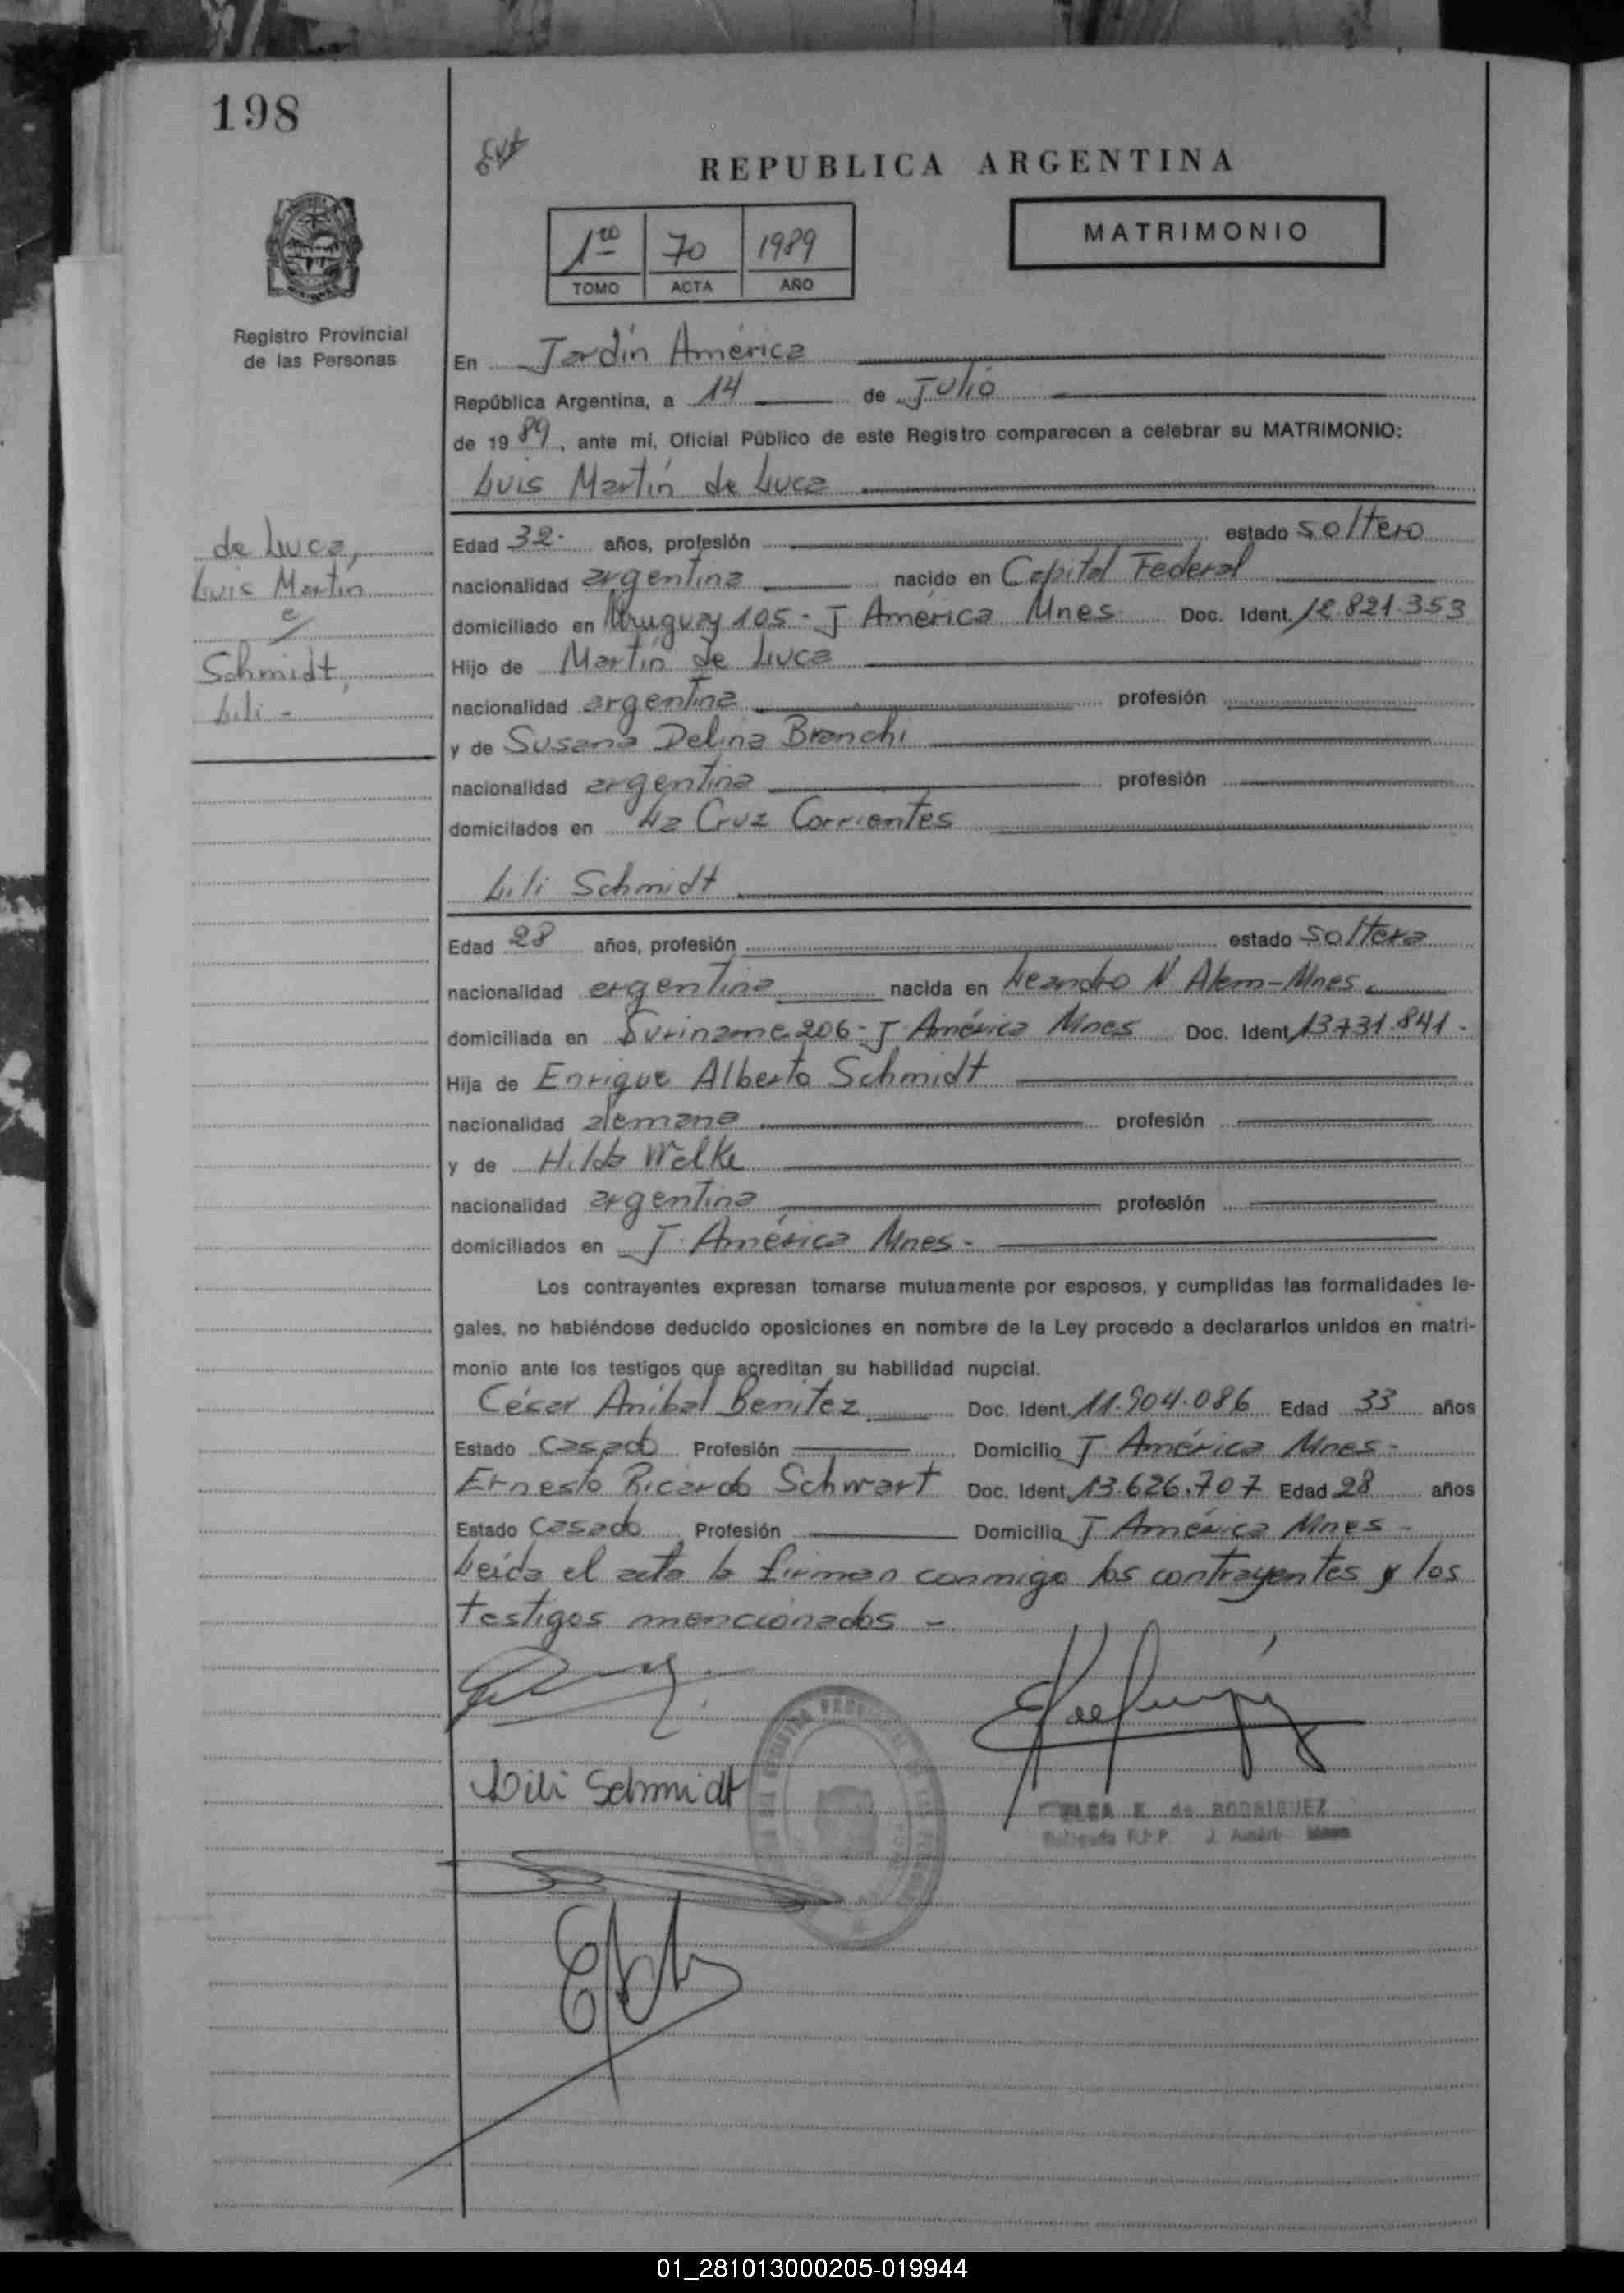 198
REPUBLICA ARGENTINA
MATRIMONIO
1ro 70 1989
TOMO ACTA AÑO
Registro Provincial
de las Personas
En Jardín América
República Argentina, a 14 de Julio
de 1989, ante mí, Oficial Público de este Registro comparecen a celebrar su MATRIMONIO:
Luis Martín de Luca
de Luca,
Luis Martín
c/
Schmidt,
Lili -
Edad 32- años, profesión estado soltero
nacionalidad argentina nacido en Capital Federal
domiciliado en Uruguay 105 - J América Mnes Doc. Ident. 12.821.353
Hijo de Martín de Luca
nacionalidad argentina profesión
y de Susana Delina Branchi
nacionalidad argentina profesión
domicilados en La Cruz Corrientes
Lili Schmidt
Edad 28 años, profesión estado soltera
nacionalidad argentina nacida en Leandro N Alem-Mnes.
domiciliada en Suriname 206 - J. América Mnes Doc. Ident. 13.731.841-
Hija de Enrique Alberto Schmidt
nacionalidad alemana profesión
y de Hilda Welke
nacionalidad argentina profesión
domiciliados en J. América Mnes -
Los contrayentes expresan tomarse mutuamente por esposos, y cumplidas las formalidades le-
gales, no habiéndose deducido oposiciones en nombre de la Ley procedo a declararlos unidos en matri-
monio ante los testigos que acreditan su habilidad nupcial.
César Aníbal Benítez Doc. Ident. 11.904.086 Edad 33 años
Estado Casado Profesión Domicilio J. América Mnes -
Ernesto Ricardo Schwart Doc. Ident. 13.626.707 Edad 28 años
Estado Casado Profesión Domicilio J América Mnes -
Leída el acta la firman conmigo los contrayentes y los
testigos mencionados -
Lili Schmidt
ELSA E. de RODRIGUEZ
Delegada R.P.P. J. Améri
01_281013000205-019944